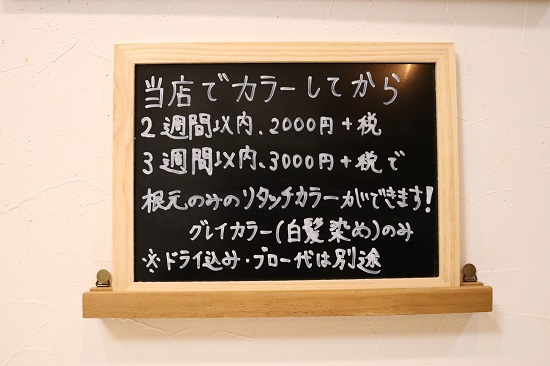 当店でカラーしてから
2週間以内、2000円+税
3週間以内、3000円+税で
根元のみのリタッチカラーができます!
グレイカラー(白髪染め)のみ
※ドライ込み・ブロー代は別途